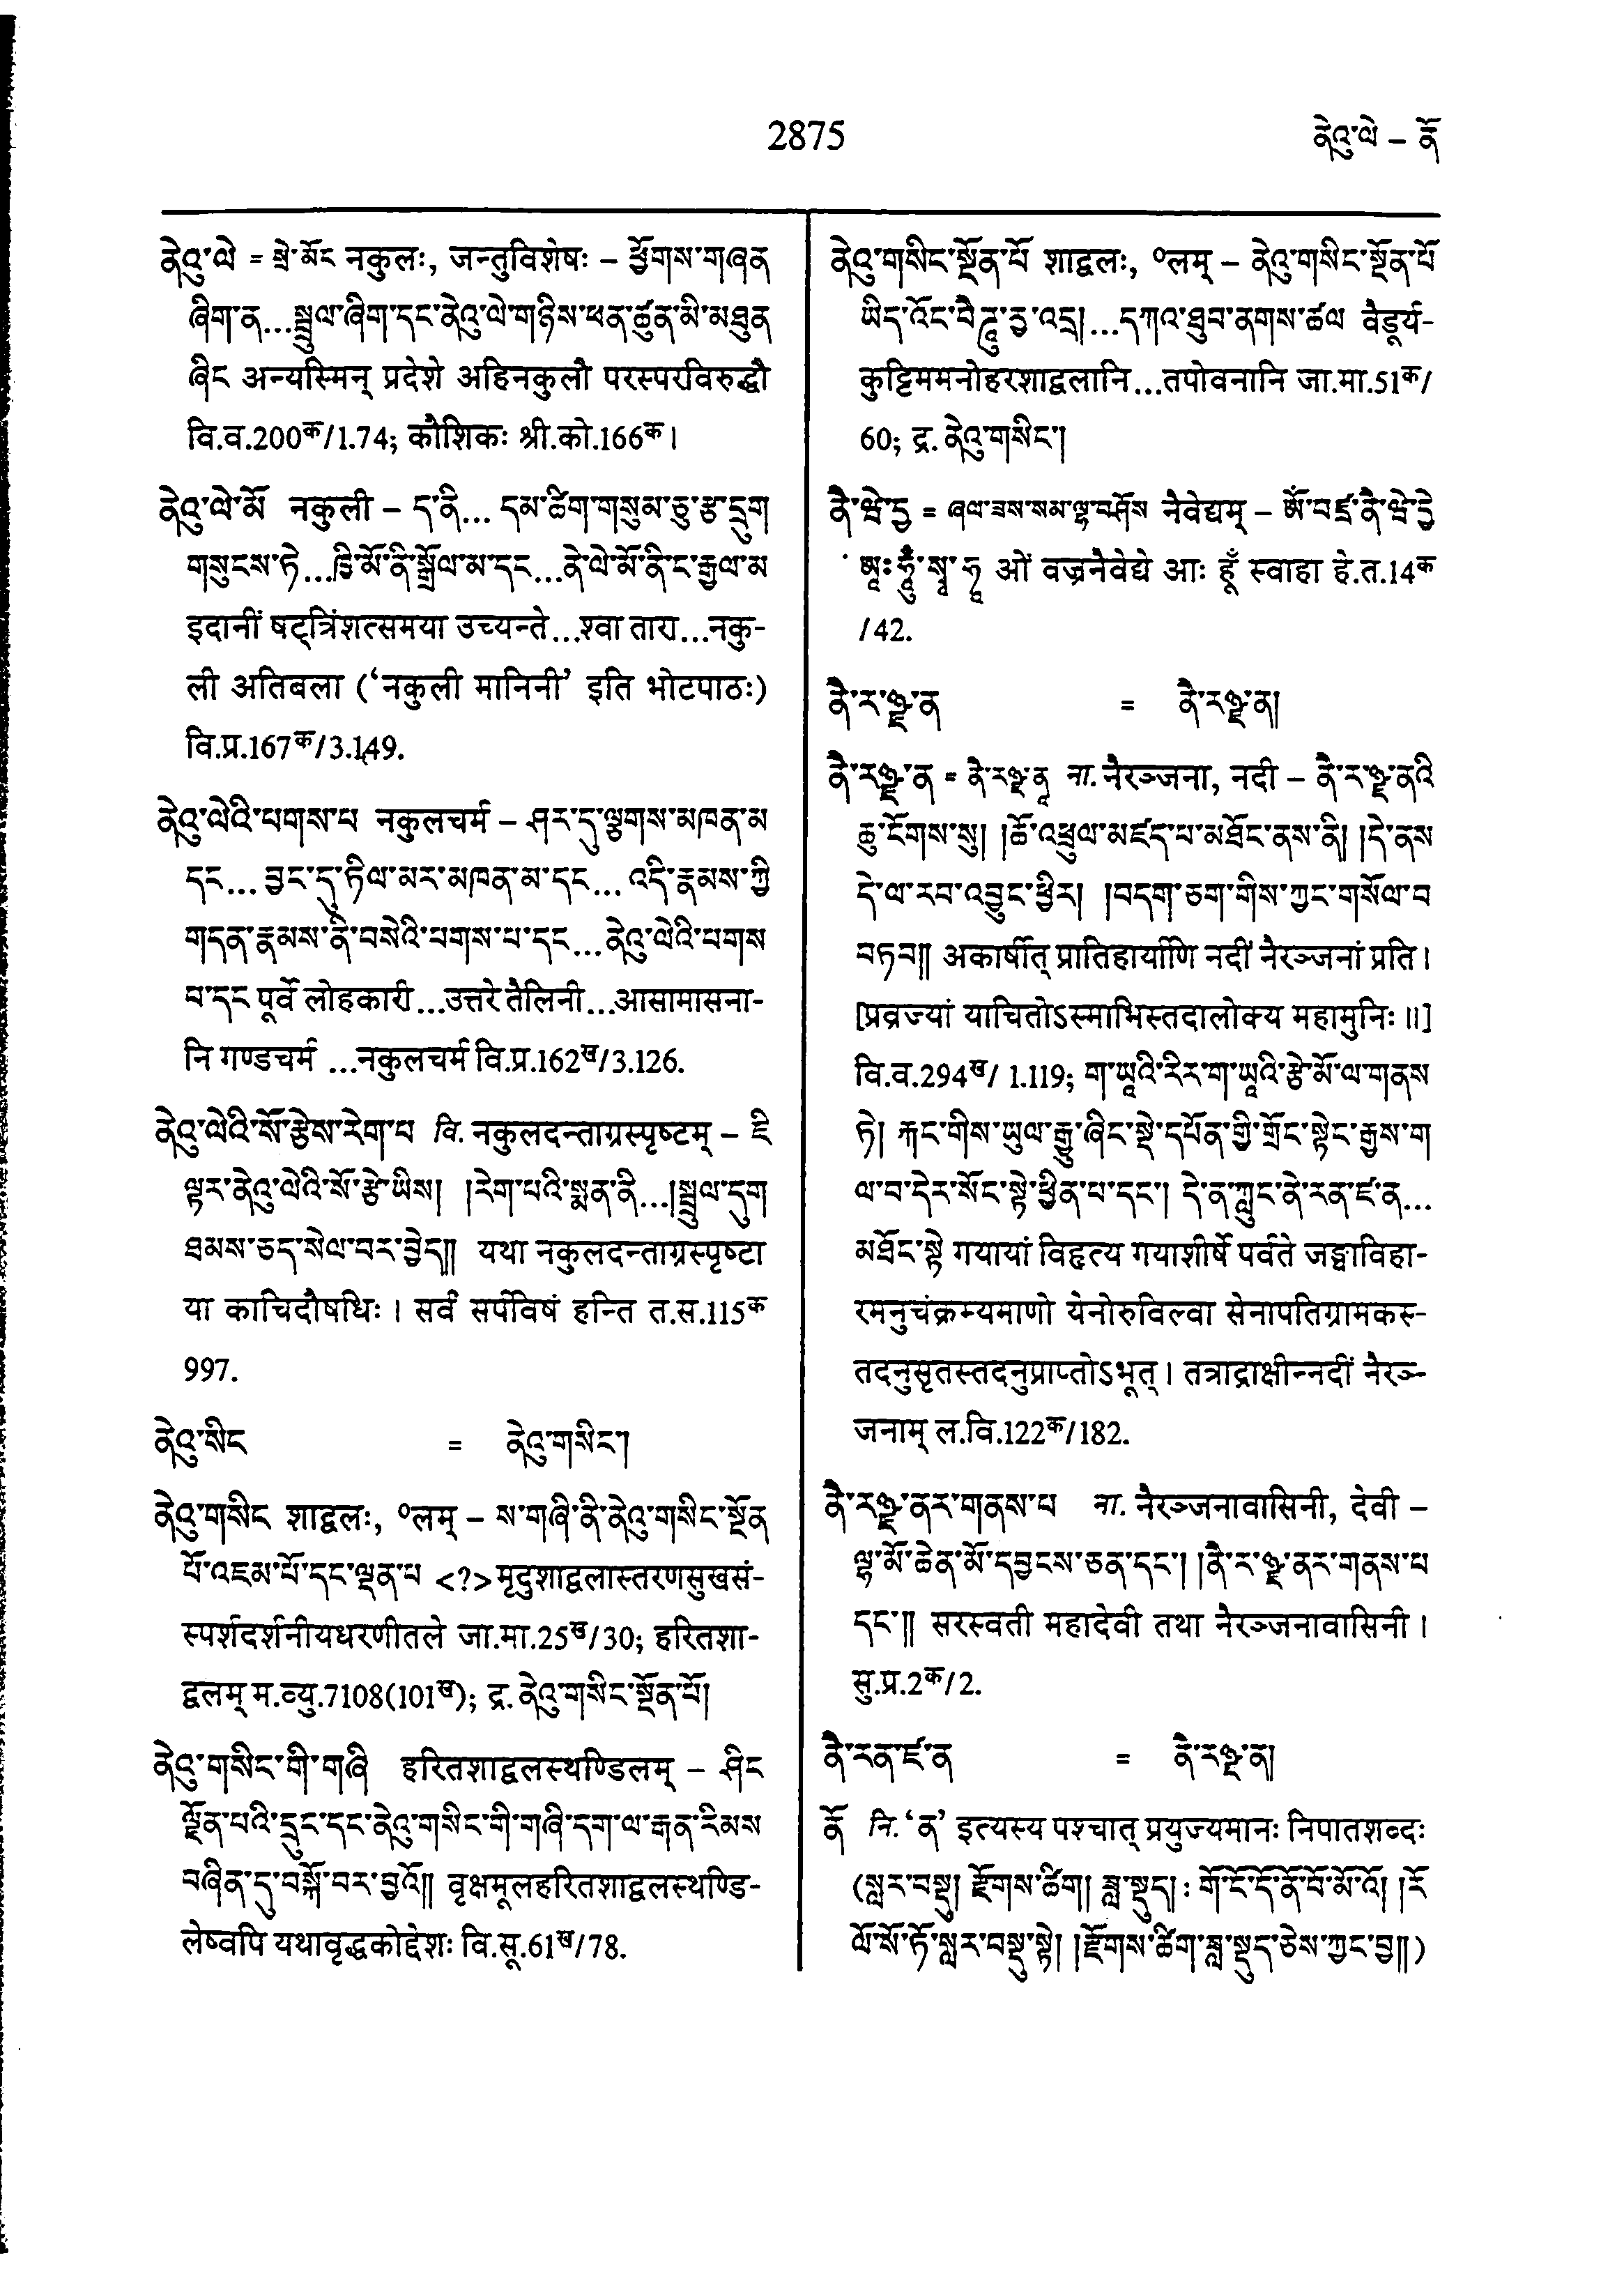 2875
ནེའུ་ལེ – ནོ
ནེའུ་ལེ = སྲེ་མོང नकुलः, जन्तुविशेषः – ཕྱོགས་གཞན
ཞིག་ན...སྦྲུལ་ཞིག་དང་ནེའུ་ལེ་གཉིས་ཕན་ཚུན་མི་མཐུན
ཞིང अन्यस्मिन् प्रदेशे अहिनकुलौ परस्परविरुद्धौ
वि.व.200क/1.74; कौशिकः श्री.को.166क।
ནེའུ་ལེ་མོ नकुली – ད་ནི... དམ་ཚིག་གསུམ་ཅུ་རྩ་དྲུག
གསུངས་ཏེ...ཁྱི་མོ་ནི་སྒྲོལ་མ་དང...ནེ་ལེ་མོ་ནི་ང་རྒྱལ་མ
इदानीं षट्त्रिंशत्समया उच्यन्ते...श्वा तारा...नकु-
ली अतिबला (‘नकुली मानिनी’ इति भोटपाठः)
वि.प्र.167क/3.149.
ནེའུ་ལེའི་པགས་པ नकुलचर्म – ཤར་དུ་ལྕགས་མཁན་མ
དང... བྱང་དུ་ཏིལ་མར་མཁན་མ་དང... འདི་རྣམས་ཀྱི
གདན་རྣམས་ནི་བསེའི་པགས་པ་དང...ནེའུ་ལེའི་པགས
པ་དང पूर्वे लोहकारी...उत्तरे तैलिनी...आसामासना-
नि गण्डचर्म ...नकुलचर्म वि.प्र.162ख/3.126.
ནེའུ་ལེའི་སོ་རྩེས་རེག་པ वि. नकुलदन्ताग्रस्पृष्टम् – ཇི
ལྟར་ནེའུ་ལེའི་སོ་རྩེ་ཡིས། །རེག་པའི་སྨན་ནི...།སྦྲུལ་དུག
ཐམས་ཅད་སེལ་བར་བྱེད༎ यथा नकुलदन्ताग्रस्पृष्टा
या काचिदौषधिः । सर्वं सर्पविषं हन्ति त.स.115क
997.
ནེའུ་སིང = ནེའུ་གསིང་།
ནེའུ་གསིང शाद्वलः, ॰लम् – ས་གཞི་ནི་ནེའུ་གསིང་སྔོན
པོ་འཇམ་པོ་དང་ལྡན་པ <?> मृदुशाद्वलास्तरणसुखसं-
स्पर्शदर्शनीयधरणीतले जा.मा.25ख/30; हरितशा-
द्वलम् म.व्यु.7108(101ख); द्र. ནེའུ་གསིང་སྔོན་པོ།
ནེའུ་གསིང་གི་གཞི हरितशाद्वलस्थण्डिलम् – ཤིང
ལྗོན་པའི་དྲུང་དང་ནེའུ་གསིང་གི་གཞི་དག་ལ་རྒན་རིམས
བཞིན་དུ་བསྐོ་བར་བྱའོ༎ वृक्षमूलहरितशाद्वलस्थण्डि-
लेष्वपि यथावृद्धकोद्देशः वि.सू.61ख/78.
ནེའུ་གསིང་སྔོན་པོ शाद्वलः, ॰लम् – ནེའུ་གསིང་སྔོན་པོ
ཡིད་འོང་བཻ་ཌཱུ་རྱ་འདྲ།...དཀའ་ཐུབ་ནགས་ཚལ वैडूर्य-
कुट्टिममनोहरशाद्वलानि...तपोवनानि जा.मा.51क/
60; द्र. ནེའུ་གསིང་།
ནཻ་ཝེ་དྱ = ཞལ་ཟས་སམ་ལྷ་བཤོས नैवेद्यम् – ཨོཾ་བཛྲ་ནཻ་ཝེ་དྱེ
ཨཱཿ་ཧཱུྃ་སྭཱ་ཧཱ ओं वज्रनैवेद्ये आः हूँ स्वाहा हे.त.14क
/42.
ནཻ་ར་ཉྫ་ན = ནཻ་རཉྫ་ན།
ནཻ་རཉྫ་ན = ནཻ་རཉྫ་ནཱ ना. नैरञ्जना, नदी – ནཻ་ར་ཉྫ་ནའི
ཆུ་ངོགས་སུ། །ཆོ་འཕྲུལ་མཛད་པ་མཐོང་ནས་ནི། །དེ་ནས
དེ་ལ་རབ་འབྱུང་ཕྱིར། །བདག་ཅག་གིས་ཀྱང་གསོལ་བ
བཏབ༎ अकार्षीत् प्रातिहार्याणि नदीं नैरञ्जनां प्रति ।
[प्रव्रज्यां याचितोऽस्माभिस्तदालोक्य महामुनिः ॥]
वि.व.294ख/ 1.119; ག་ཡཱའི་རིར་ག་ཡཱའི་རྩེ་མོ་ལ་གནས
ཏེ། རྐང་གིས་ཡུལ་རྒྱུ་ཞིང་སྡེ་དཔོན་གྱི་གྲོང་སྟེང་རྒྱས་ག
ལ་བ་དེར་སོང་སྟེ་ཕྱིན་པ་དང་། དེ་ན་ཀླུང་ནཻ་རན་ཛ་ན...
མཐོང་སྟེ गयायां विहृत्य गयाशीर्षे पर्वते जङ्घाविहा-
रमनुचंक्रम्यमाणो येनोरुविल्वा सेनापतिग्रामकस्-
तदनुसृतस्तदनुप्राप्तोऽभूत् । तत्राद्राक्षीन्नदीं नैरञ्-
जनाम् ल.वि.122क/182.
ནཻ་རཉྫ་ནར་གནས་པ ना. नैरञ्जनावासिनी, देवी –
ལྷ་མོ་ཆེན་མོ་དབྱངས་ཅན་དང་། །ནཻ་ར་ཉྫ་ནར་གནས་པ
དང་༎ सरस्वती महादेवी तथा नैरञ्जनावासिनी ।
सु.प्र.2क/2.
ནཻ་རན་ཛ་ན = ནཻ་རཉྫ་ན།
ནོ नि. ‘न’ इत्यस्य पश्चात् प्रयुज्यमानः निपातशब्दः
(སླར་བསྡུ། རྫོགས་ཚིག། ཟླ་སྡུད། : གོ་ངོ་དོ་ནོ་བོ་མོ་འོ། །རོ
ལོ་སོ་ཏོ་སླར་བསྡུ་སྟེ། །རྫོགས་ཚིག་ཟླ་སྡུད་ཅེས་ཀྱང་བྱ༎)